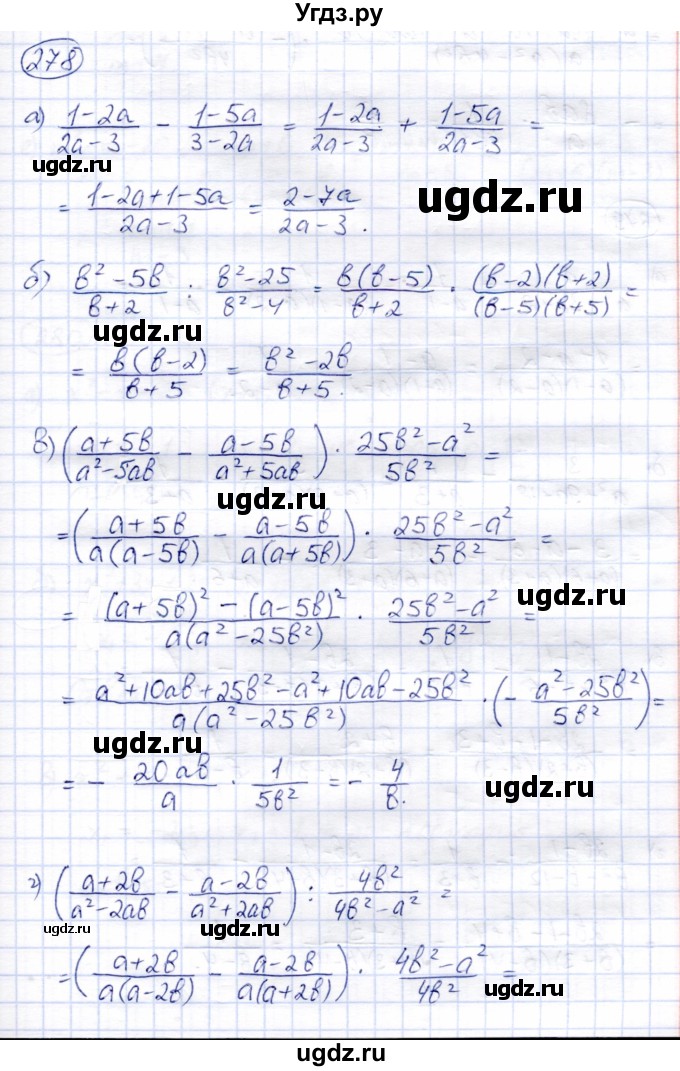 Угдз.ру
278
а) (1-2a)/(2a-3) - (1-5a)/(3-2a) = (1-2a)/(2a-3) + (1-5a)/(2a-3) =
ugdz.ru
ugdz.ru
= (1-2a+1-5a)/(2a-3) = (2-7a)/(2a-3).
б) (в²-5в)/(в+2) : (в²-25)/(в²-4) = в(в-5)/(в+2) · (в-2)(в+2)/((в-5)(в+5)) =
ugdz.ru
ugdz.ru
= в(в-2)/(в+5) = (в²-2в)/(в+5).
в) ((a+5в)/(a²-5aв) - (a-5в)/(a²+5aв)) · (25в²-a²)/(5в²) =
ugdz.ru
= ((a+5в)/(a(a-5в)) - (a-5в)/(a(a+5в))) · (25в²-a²)/(5в²) =
ugdz.ru
= ((a+5в)²-(a-5в)²)/(a(a²-25в²)) · (25в²-a²)/(5в²) =
= (a²+10aв+25в²-a²+10aв-25в²)/(a(a²-25в²)) · (- (a²-25в²)/(5в²)) =
ugdz.ru
ugdz.ru
= - 20aв/a · 1/(5в²) = - 4/в.
г) ((a+2в)/(a²-2aв) - (a-2в)/(a²+2aв)) : 4в²/(4в²-a²) =
ugdz.ru
ugdz.ru
= ((a+2в)/(a(a-2в)) - (a-2в)/(a(a+2в))) · (4в²-a²)/(4в²) =
ugdz.ru
ugdz.ru